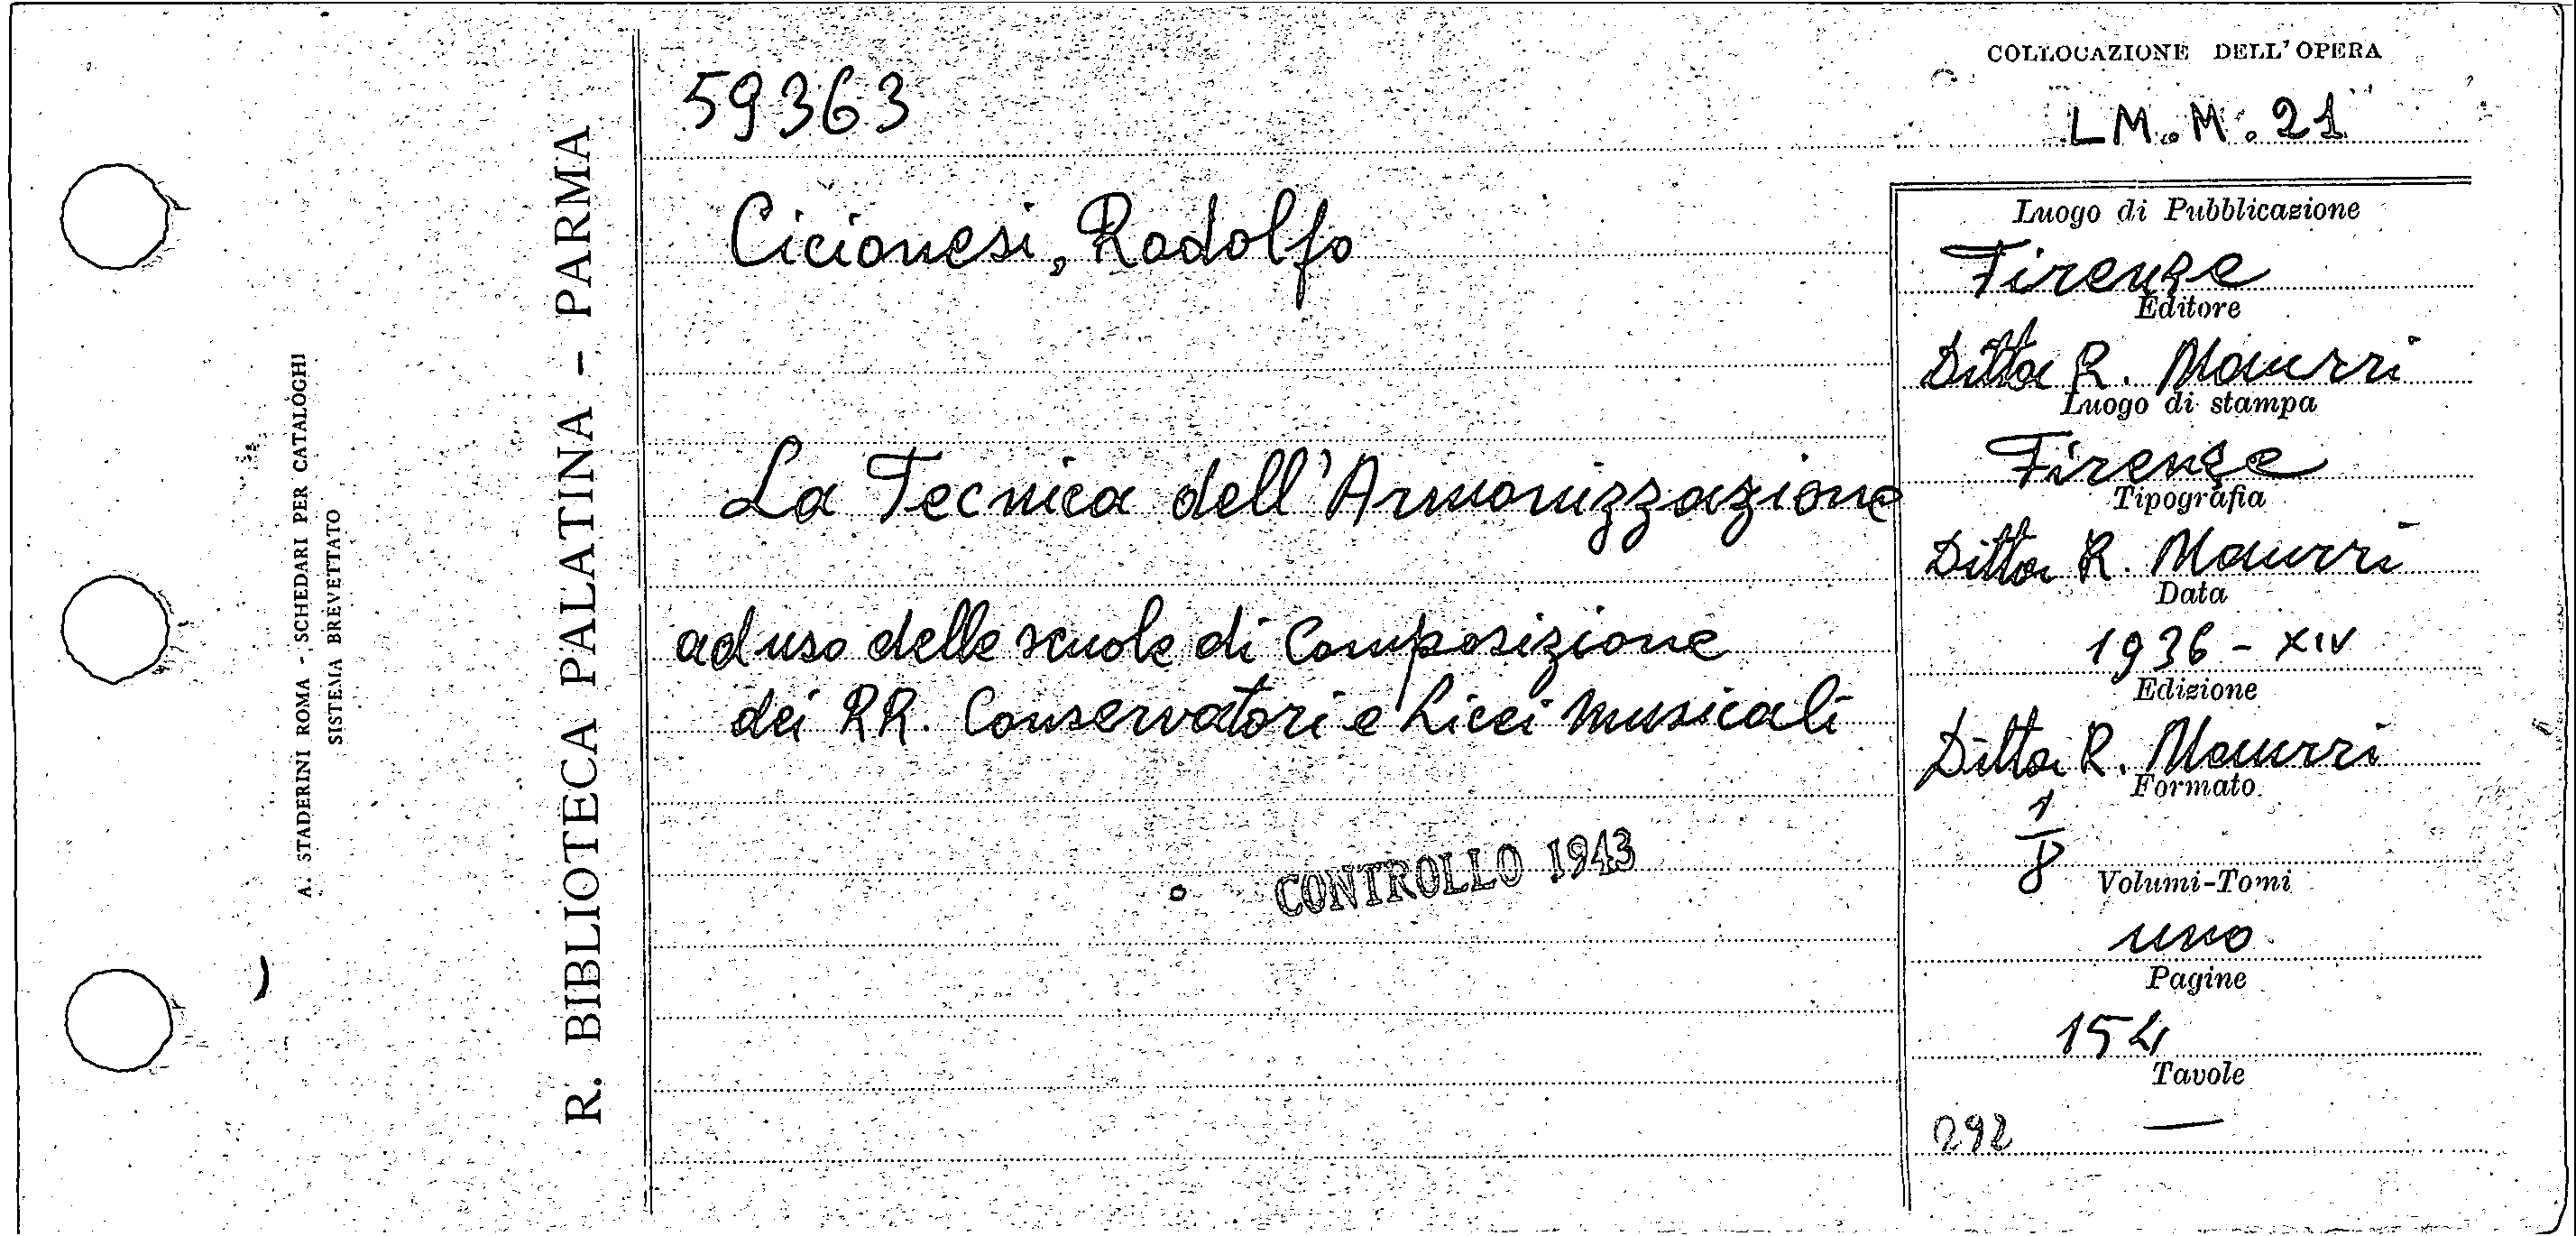 COLLOCAZIONE DELL'OPERA
59363
LM. M. 21
Cicionesi, Rodolfo
La Tecnica dell'Armonizzazione
ad uso delle scuole di Composizione
dei RR. Conservatori e Licei musicali
CONTROLLO 1943
Luogo di Pubblicazione
Firenze
Editore
Ditta R. Maurri
Luogo di stampa
Firenze
Tipografia
Ditta R. Maurri
Data
1936 - XIV
Edizione
Ditta R. Maurri
Formato
1/8
Volumi-Tomi
uno
Pagine
154
Tavole
—
292
R. BIBLIOTECA PALATINA - PARMA
A. STADERINI ROMA - SCHEDARI PER CATALOGHI
SISTEMA BREVETTATO